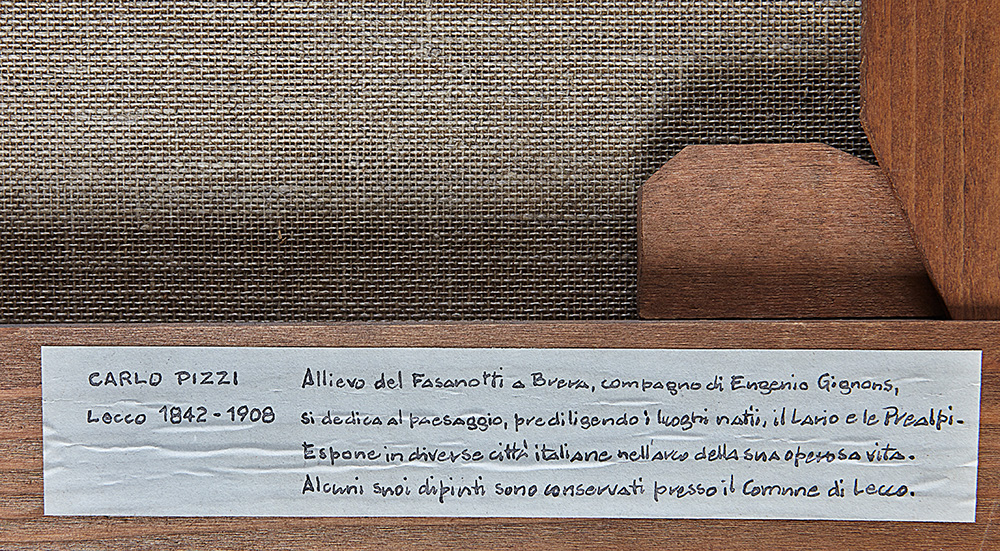 CARLO PIZZI
Lecco 1842-1908
Allievo del Fasanotti a Brera, compagno di Eugenio Gignons,
si dedica al paesaggio, prediligendo i luoghi natii, il Lario e le Prealpi.
Espone in diverse città italiane nell'arco della sua operosa vita.
Alcuni suoi dipinti sono conservati presso il Comune di Lecco.